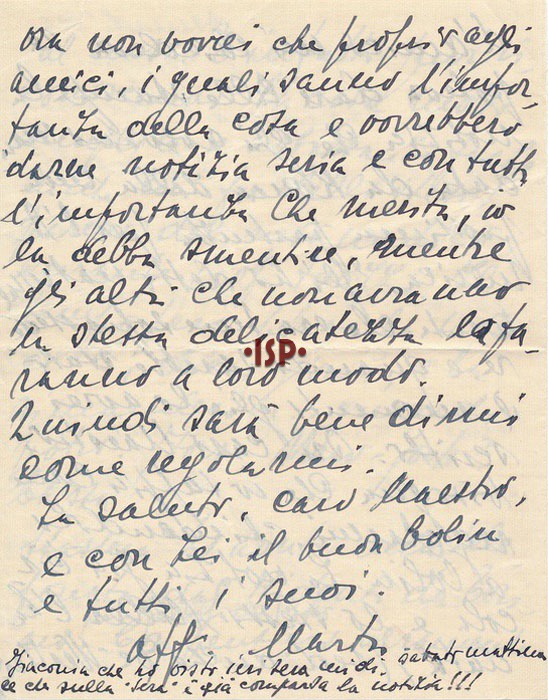 ora non vorrei che proprio agli
amici, i quali sanno l'impor-
tanza della cosa e vorrebbero
darne notizia seria e con tutta
l'importanza che merita, io
la debba smentire, mentre
gli altri che non avranno
la stessa delicatezza la fa-
ranno a loro modo.
Quindi sarà bene dirmi
come regolarmi.
La saluto, caro Maestro,
e con Lei il buon Bolin
e tutti i suoi.
aff. Martin
Giaconia che ho visto ieri sera mi di sabato mattina
ce che sulla "Sera" è già comparsa la notizia!!!
·ISP·